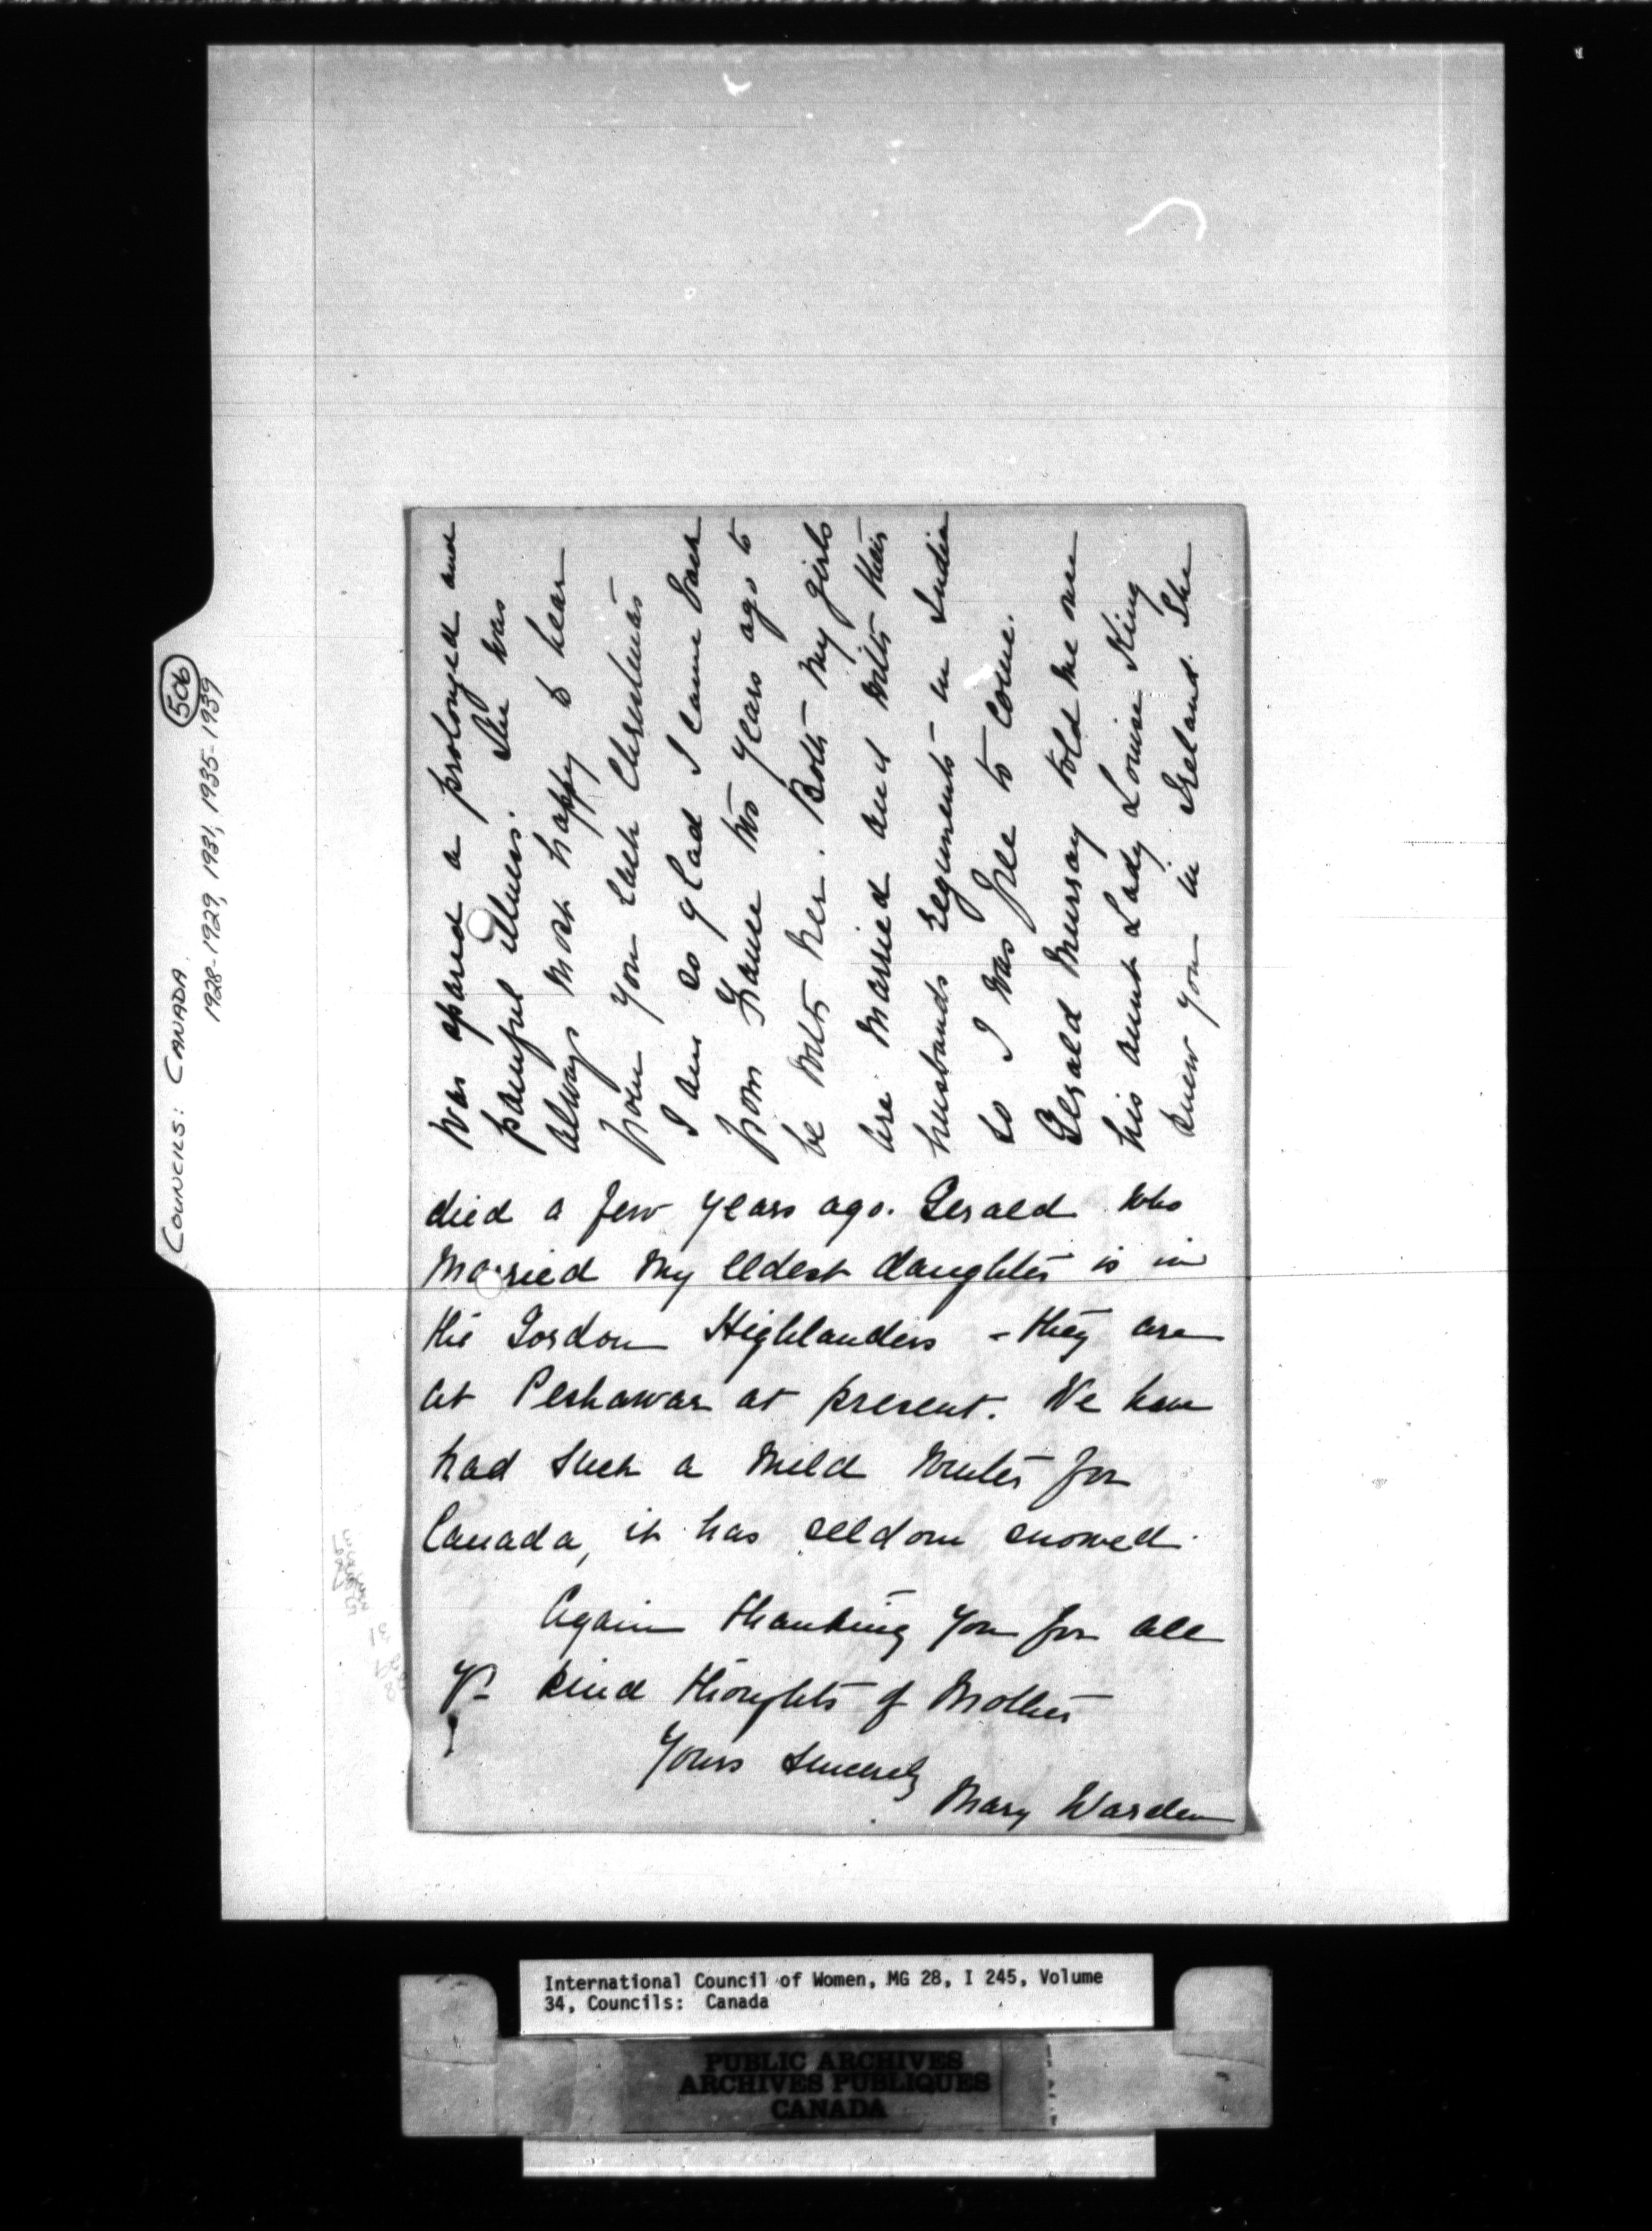 506
COUNCILS: CANADA.
1928-1929, 1931, 1935-1939
was spared a prolonged and
painful illness. She was
always most happy to hear
from you each Christmas
I am so glad I came back
from France two years ago to
be with her. Both my girls
are married and with their
husbands regiments in India
so I was free to come.
Gerald Murray told me one
his aunt Lady Louise King
knew you in Ireland. She
died a few years ago. Gerald who
married my eldest daughter is in
the Gordon Highlanders - they are
at Peshawar at present. We have
had such a mild winter for
Canada, it has seldom snowed.
Again thanking you for all
yr kind thoughts of Mother
Yours sincerely
Mary Warden
International Council of Women, MG 28, I 245, Volume
34, Councils: Canada
PUBLIC ARCHIVES
ARCHIVES PUBLIQUES
CANADA